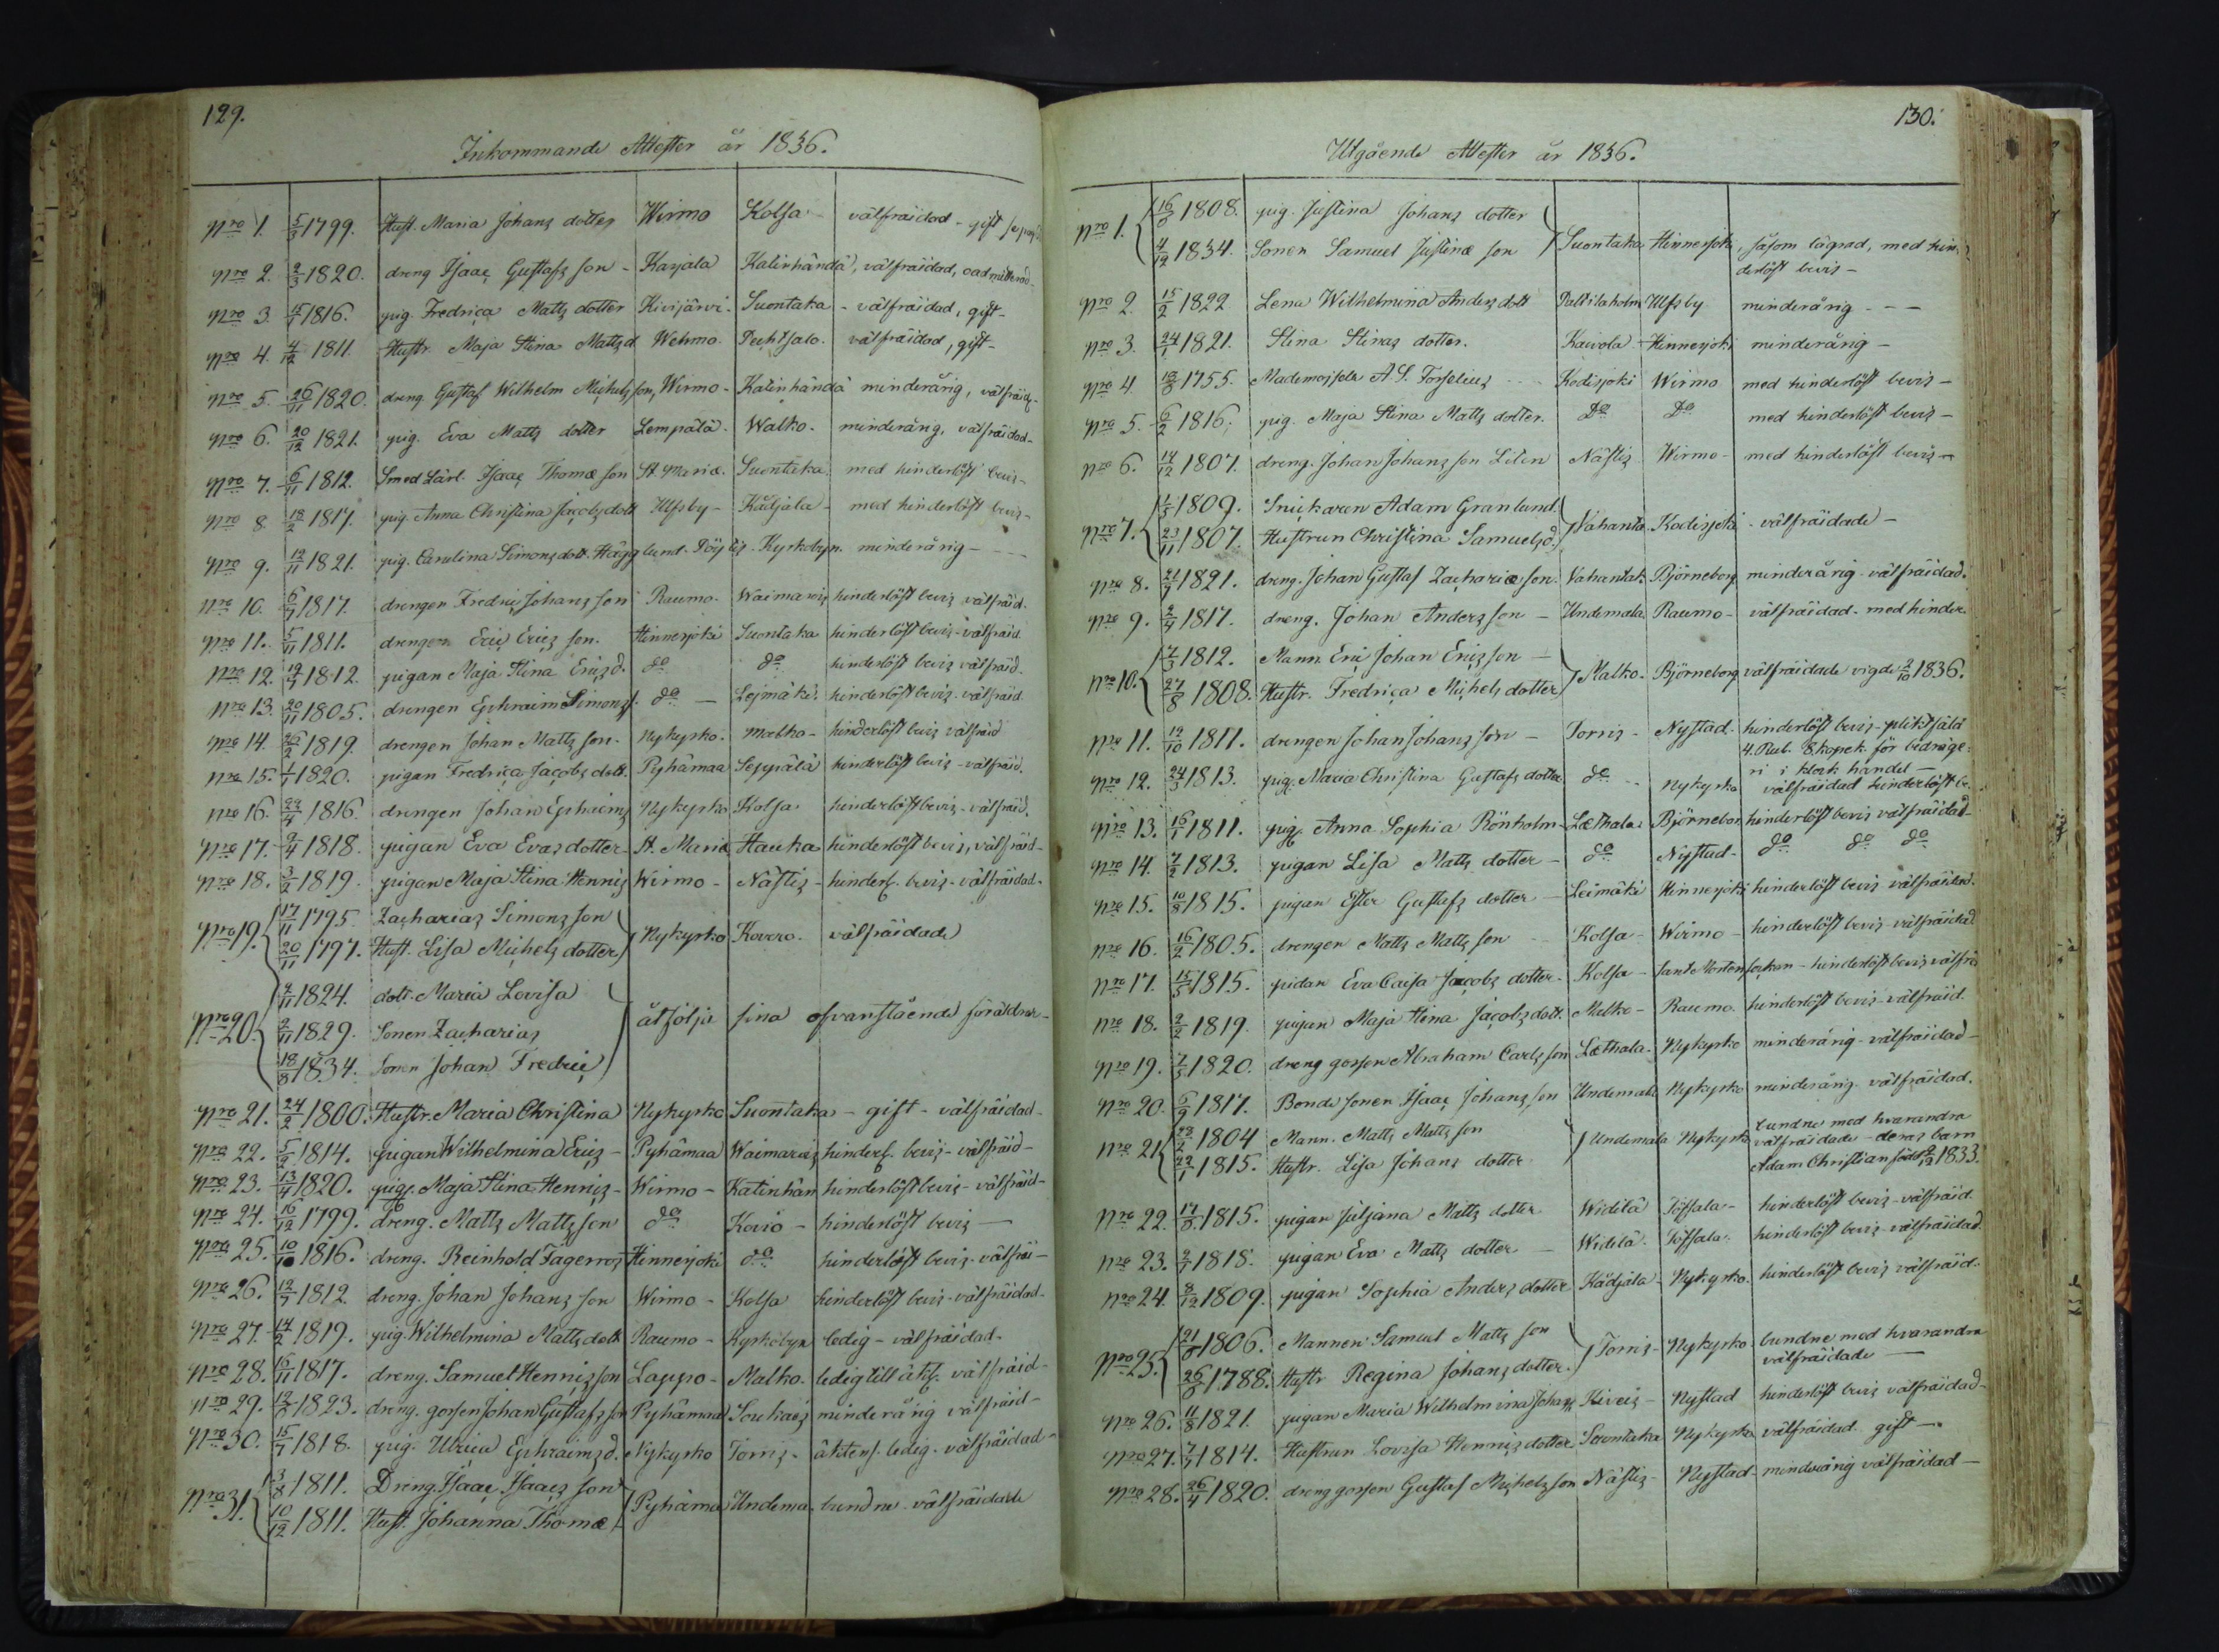 129.
Inkommande Attester år 1836.
Nro 1. 5/3 1799. Hust. Maria Johans dotter Wirmo Kolsa välfräidad - gift
Nro 2. 2/3 1820. dreng Isaac Gustafs son - Karjala Katinhändä, välfräidad, oadmitterad
Nro 3. 1816. pig. Fredrica Matts dotter Kivijärvi. Suontaka - välfräidad, gift -
Nro 4. 4/12 1811. Hustr. Maja Stina Mattsd Wehmo. Puhtsalo. välfräidad, gift -
Nro 5. 26/11 1820. dreng Gustaf Wilhelm Michels son, Wirmo - Katinhändä minderårig, välfräid.
Nro 6. 20/12 1821. pig. Eva Matts dotter Lempälä - Walko. minderårig, välfräidad -
Nro 7. 6/11 1812. Smed Lärl. Isaac Thomæ son St Mariæ. Suontaka med hinderlöst bevis -
Nro 8. 18/2 1817. pig. Anna Christina Jacobs dott Ulfsby - Kådjala - med hinderlöst bevis -
Nro 9. 12/11 1821. pig. Carolina Simons dott. Hägglund. Pöytis - Kyrkobyn. minderårig -
Nro 10. 6/7 1817. drengen Fredric Johans son Raumo. Waimaris hinderlöst bevis välfräid.
Nro 11. 5/11 1811. drengen Eric Erics son. Hinnerjoki Suontaka hinderlöst bevis - välfräid.
Nro 12. 19/7 1812. pigan Maja Stina Ericsd. do do hinderlöst bevis välfräid.
Nro 13. 20/11 1805. drengen Ephraim Simons s. do - Leimäki. hinderlöst bevis - välfräid.
Nro 14. 26/2 1819. drengen Johan Matts son. Nykyrko. Malko - hinderlöst bevis välfräid
Nro 15. 1/1 1820. pigan Fredrica Jacobs dott. Pyhämaa Seppälä hinderlöst bevis - välfräid.
Nro 16. 24/4 1816. drengen Johan Ephraims Nykyrko Kolsa hinderlöst bevis - välfräid.
Nro 17. 9/4 1818. pigan Eva Evas dotter - St. Mariæ Hauka hinderlöst bevis, välfräid -
Nro 18. 3/2 1819. pigan Maja Stina Henrics Wirmo - Nästis - hinderl. bevis - välfräidad -
Nro 19. 17/11 1795. Zacharias Simons son
20/11 1797. Hust. Lisa Michels dotter Nykyrko Kovero. välfräidade
Nro 20. 1824. dott. Maria Lovisa
2/11 1829. Sonen Zacharias åtfölja sina ofvanstående föräldrar -
18/8 1834. Sonen Johan Fredric
Nro 21. 24/2 1800. Hustr. Maria Christina Nykyrko Suontaka - gift - välfräidad -
Nro 22. 5/2 1814. pigan Wilhelmina Erics - Pyhämaa Waimaris hinderl. bevis - välfräid -
Nro 23. 13/4 1820. pig. Maja Stina Henrics - Wirmo - Katinhän hinderlöst bevis - välfräid -
Nro 24. 16/12 1799. dreng. Matts Matts son do Kovio - hinderlöst bevis -
Nro 25. 10/10 1816. dreng. Reinhold Fagerros Hinnerjoki do hinderlöst bevis - välfräi -
Nro 26. 12/7 1812. dreng. Johan Johans son Wirmo - Kolsa hinderlöst bevis - välfräidad -
Nro 27. 14/2 1819. pig. Wilhelmina Matts dott Raumo - Kyrkobyn ledig - välfräidad -
Nro 28. 16/11 1817. dreng. Samuel Henrics son Lappo - Malko. ledig till äkt. välfräid -
Nro 29. 12/8 1823. dreng. gossen Johan Gustafs son Pyhämaa Soukais minderårig välfräid -
Nro 30. 15/7 1818. pig. Ulrica Ephraimsd. Nykyrko Torris - äktens. ledig - välfräidad -
Nro 31. 3/8 1811. Dreng. Isaac Isaacs son
10/12 1811. Hust. Johanna Thomæ Pyhämaa Undema. bundne - välfräidade
130.
Utgående Attester år 1836.
Nro 1. 16/8 1808. pig. Justina Johans dotter
4/12 1834. Sonen Samuel Justinæ son Suontaka Hinnerjoki, såsom lägrad, med hin-
derlöst bevis -
Nro 2. 15/2 1822 Lena Wilhelmina Anders dott Paltilaholm Ulfsby minderårig - -
Nro 3. 24/1 1821. Stina Stinas dotter. Kaivola - Hinnerjoki minderårig -
Nro 4. 18/8 1755. Mademoiselle A. S. Forselius - - Kodisjoki Wirmo med hinderlöst bevis -
Nro 5. 6/2 1816. pig. Maja Stina Matts dotter. Do Do med hinderlöst bevis -
Nro 6. 14/12 1807. dreng. Johan Johans son Liten Nästis Wirmo - med hinderlöst bevis -
Nro 7. 1/5 1809. Snickaren Adam Granlund.
23/11 1807. Hustrun Christina Samuelsd. Vahanta. Kodisjoki - välfräidade -
Nro 8. 1821. dreng. Johan Gustaf Zachariæ son. Vahantak Björneborg minderårig välfräidad.
Nro 9. 4/4 1817. dreng. Johan Anders son - Undemala Raumo - välfräidad - med hinder.
Nro 10. 7/3 1812. Mann. Eric Johan Erics son -
27/8 1808. Hustr. Fredrica Michels dotter Malko. Björneborg välfräidade vigde 2/10 1836.
Nro 11. 12/10 1811. drengen Johan Johans son - Torris - Nystad. hinderlöst bevis - pliktfäld
4. Rub. 8. kopek. för bedräge-
ri i klock handel -
Nro 12. 24/3 1813. pig. Maria Christina Gustafs dotter do - Nykyrko välfräidad hinderlöst be.
Nro 13. 16/1 1811. pig. Anna Sophia Rönholm - Læthala. Björnebor. hinderlöst bevis välfräidad -
Nro 14. 7/2 1813. pigan Lisa Matts dotter - do Nystad - do do do
Nro 15. 10/8 1815. pigan Ester Gustafs dotter - Leimäki Hinnerjoki hinderlöst bevis välfräidad.
Nro 16. 16/2 1805. drengen Matts Matts son Kolsa - Wirmo - hinderlöst bevis - välfräidad
Nro 17. 15/5 1815. pidan Eva Caisa Jacobs dotter - Kolsa - Sant Mortens sockan - hinderlöst bevis välfrä
Nro 18. 2/2 1819. pigan Maja Stina Jacobs dott. Malko - Raumo. hinderlöst bevis - välfräid.
Nro 19. 7/5 1820. dreng gossen Abraham Carls son Læthala - Nykyrko minderårig - välfräidad -
Nro 20. 6/9 1817. Bonde sonen Isaac Johans son Undemala Nykyrko minderårig - välfräidad.
Nro 21. 28/2 1804 Mann. Matts Matts son bundne med hvarandra
1815. Hustr. Lisa Johans dotter Undemala Nykyrk välfräidade - deras barn
Adam Christian född 1833.
Nro 22. 17/8 1815. pigan Juljana Matts dotter Widilä Töfsala - hinderlöst bevis - välfräid.
Nro 23. 1818. pigan Eva Matts dotter - Widilä. Töfsala. hinderlöst bevis - välfräidad.
Nro 24. 8/12 1809. pigan Sophia Anders dotter Kådjala - Nykyrko. hinderlöst bevis välfräid.
Nro 25. 21/8 1806. Mannen Samuel Matts son
26/8 1788. Hustr Regina Johans dotter. Torris - Nykyrko. bundne med hvarandra
välfräidade -
Nro 26. 11/8 1821. pigan Maria Wilhelmina Johans Kiveis - Nystad hinderlöst bevis välfräidad -
Nro 27. 7/7 1814. Hustrun Lovisa Henrics dotter Suontaka Nykyrko välfräidad gift -
Nro 28. 26/4 1820. dreng gossen Gustaf Michels son Nästis - Nystad - minderårig välfräidad -